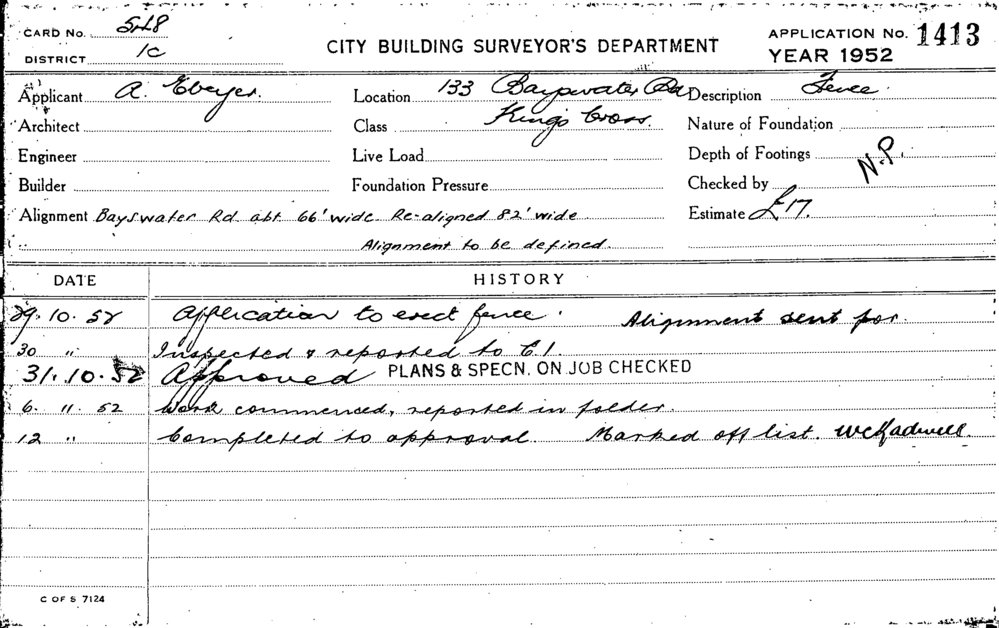 CARD No. 5448
DISTRICT 1C
CITY BUILDING SURVEYOR'S DEPARTMENT
APPLICATION No. 1413
YEAR 1952
Applicant A. Ebeyer.
Location 133 Bayswater Rd
Kings Cross.
Description Fence.
Architect
Class
Nature of Foundation
Engineer
Live Load
Depth of Footings N.P.
Builder
Foundation Pressure
Checked by
Alignment Bayswater Rd abt. 66' wide. Re-aligned 82' wide
Alignment to be defined.
Estimate £17.
DATE HISTORY
29.10.52 Application to erect fence. Alignment sent for.
30 " Inspected & reported to C.I.
31.10.52 Approved PLANS & SPECN. ON JOB CHECKED
6. 11. 52 Work commenced, reported in folder.
12 " Completed to approval. Marked off list. WCKadwell.
C OF S 7124